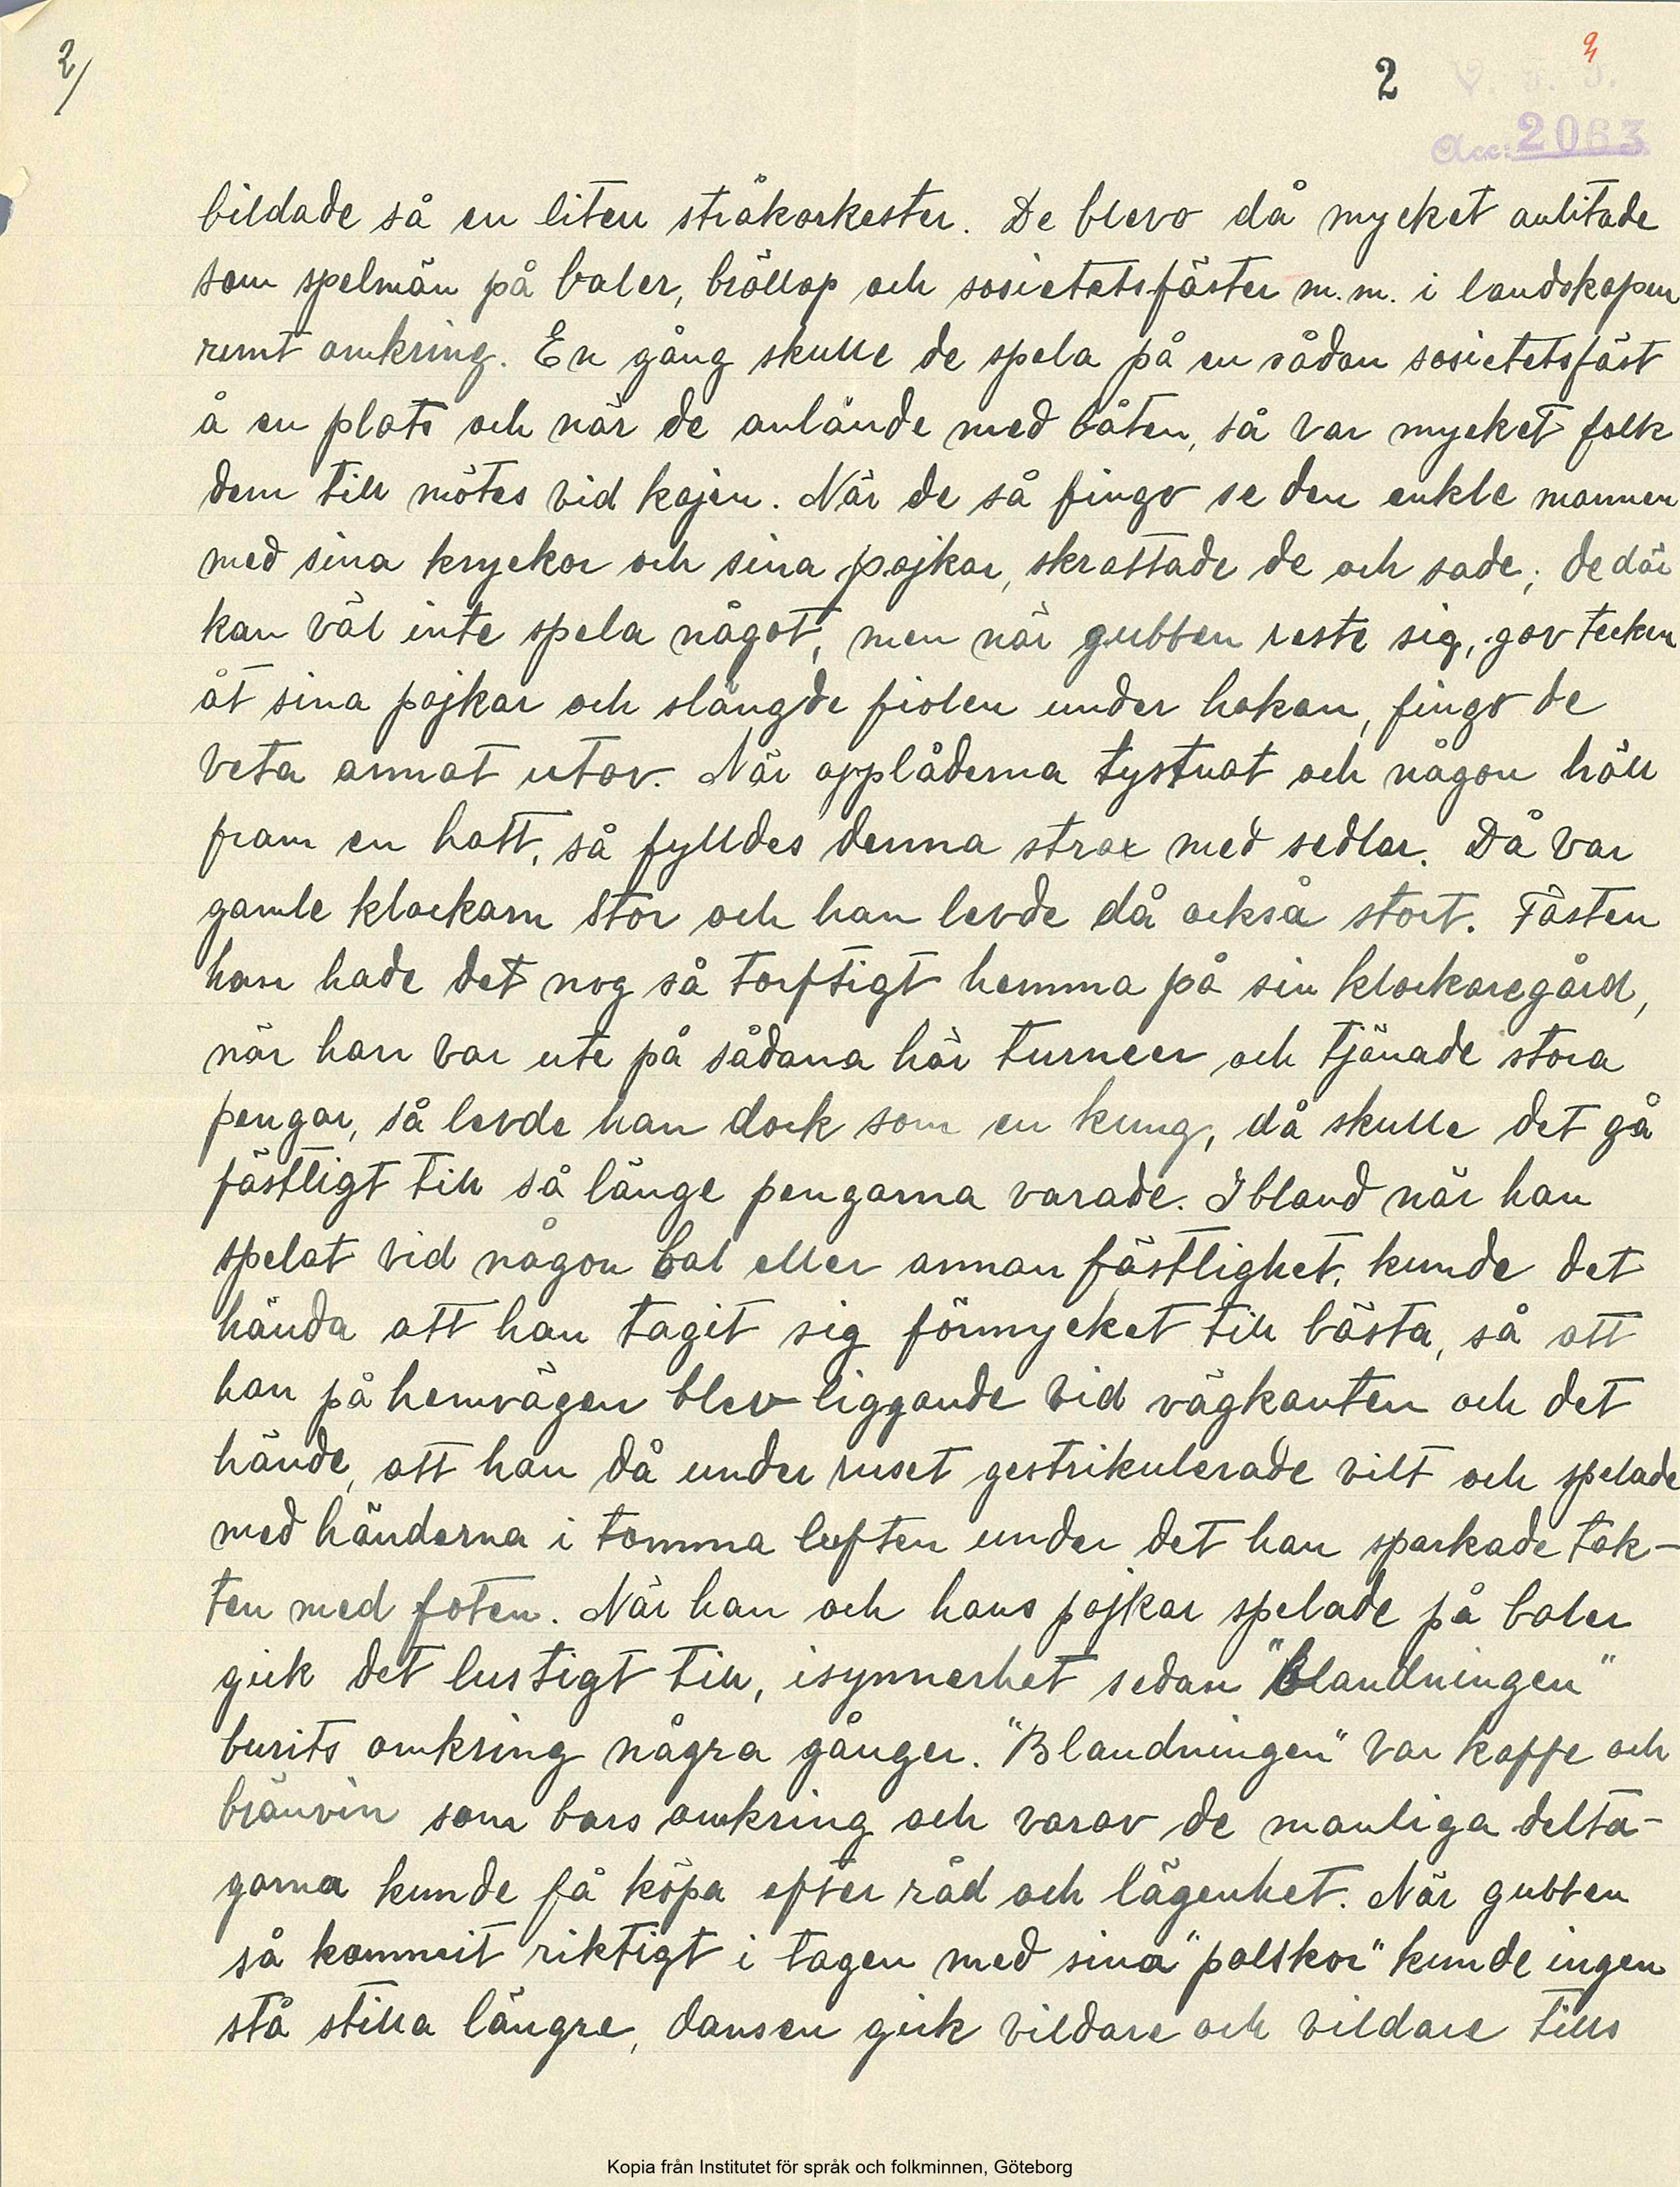 2/
2
9
V. F. I.
Acc: 2063
bildade så en liten stråkorkester. De blevo då mycket anlitade
som spelmän på baler, bröllop och sosietetsfäster m.m. i landskapen
runt omkring. En gång skulle de spela på en sådan sosietetsfäst
å en plats och när de anlände med båten, så var mycket folk
dem till mötes vid kajen. När de så fingo se den enkle mannen
med sina kryckor och sina pojkar, skrattade de och sade; de där
kan väl inte spela något, men när gubben reste sig, gav tecken
åt sina pojkar och slängde fiolen under hakan, fingo de
veta annat utav. När applåderna tystnat och någon höll
fram en hatt, så fylldes denna strax med sedlar. Då var
gamle klockarn stor och han levde då också stort. Fästen
han hade det nog så torftigt hemma på sin klockaregård,
när han var ute på sådana här turneer och tjänade stora
pengar, så levde han dock som en kung, då skulle det gå
fästligt till så länge pengarna varade. Ibland när han
spelat vid någon bal eller annan fästlighet, kunde det
hända att han tagit sig förmycket till bästa, så att
han på hemvägen blev liggande vid vägkanten och det
hände, att han då under ruset gestrikulerade vilt och spelade
med händerna i tomma luften under det han sparkade tak-
ten med foten. När han och hans pojkar spelade på baler
gick det lustigt till, isynnerhet sedan "blandningen"
burits omkring några gånger. "Blandningen" var kaffe och
bränvin som bars omkring och varav de manliga delta-
garna kunde få köpa efter råd och lägenhet. När gubben
så kommit riktigt i tagen med sina "polskor" kunde ingen
stå stilla längre, dansen gick vildare och vildare tills
Kopia från Institutet för språk och folkminnen, Göteborg